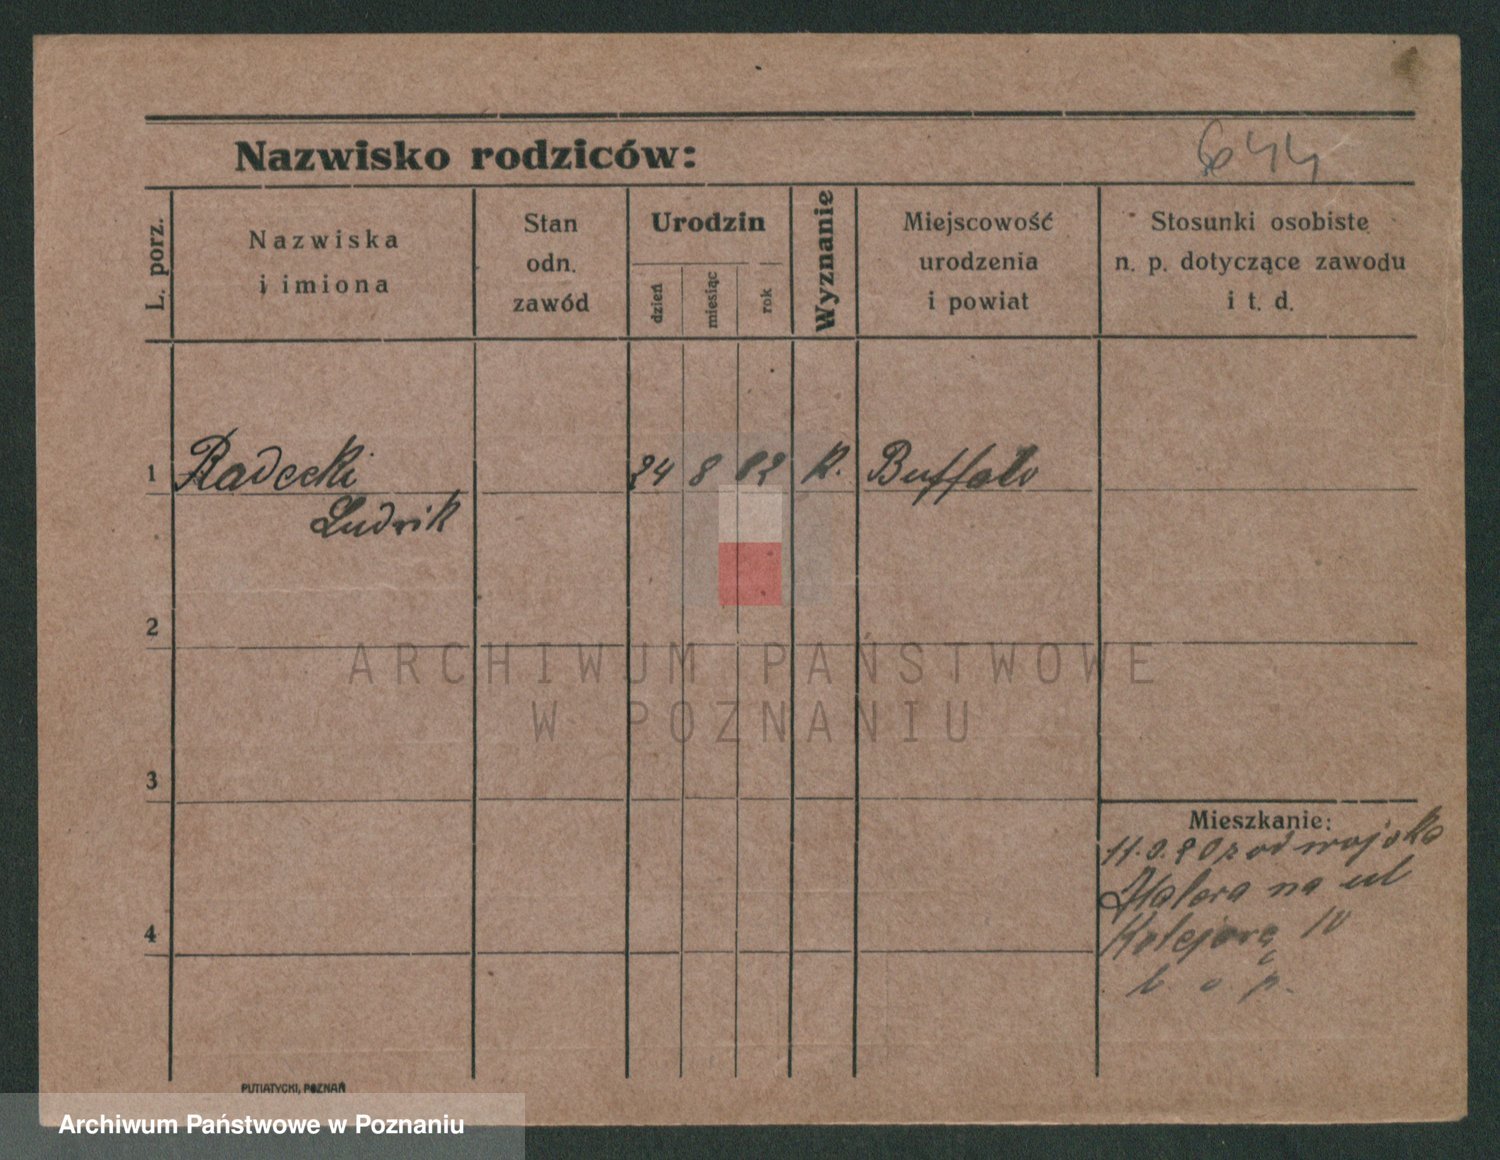 Nazwisko rodziców:
644
L. porz.
Nazwiska
i imiona
Stan
odn.
zawód
Urodzin
dzień
miesiąc
rok
Wyznanie
Miejscowość
urodzenia
i powiat
Stosunki osobiste
n. p. dotyczące zawodu
i t. d.
1 Radecki 24 8 82 k. Buffalo
Ludwik
2
ARCHIWUM PAŃSTWOWE
W POZNANIU
3
Mieszkanie:
11.9.20 z od wojska
Halera na ul
4 Kolejową 10
b o p.
PUTIATYCKI, POZNAŃ
Archiwum Państwowe w Poznaniu